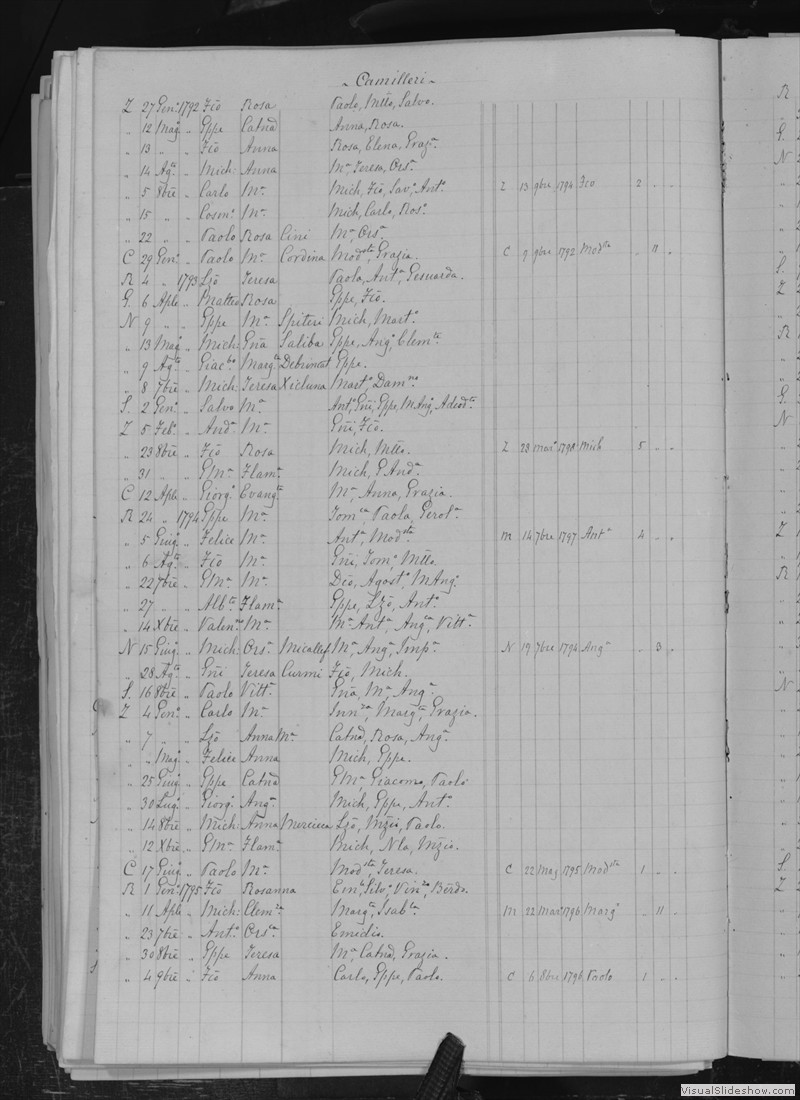 Camilleri
Z 27 Gen.º 1792 Fčo Rosa Paolo, Mtto, Salvo.
„ 12 Magº „ Gppe Catnȧ Anna, Rosa.
„ 13 „ „ Fčo Anna Rosa, Elena, Grazª.
„ 14 Agto „ Mich: Anna Mª, Teresa, Orsª.
„ 5 8bre „ Carlo Mª Mich, Fčo, Savº, Antº. Z 13 9bre 1794 Fčo 2 „ „
„ 15 „ „ Cosmº Mª Mich, Carlo, Rosª.
„ 22 „ „ Paolo Rosa Cini Mª, Orsª.
C 29 Genº „ Paolo Mª Cordina Modsta, Grazia. C 9 9bre 1792 Modsta „ 11 „
R 4 „ 1793 Lzo Teresa Paola, Antª,
G. 6 Aple „ Matteo Rosa Gppe, Fčo.
N 9 „ „ Gppe Mª Spiteri Mich, Martº.
„ 13 Magº „ Mich: Gña Saliba Gppe, Angº, Clemte.
„ 9 Agto „ Giacbo Margta Debrincat Gppe.
„ 8 7bre „ Mich: Teresa Xicluna Martº, Damno
S. 2 Genº „ Salvo Mª Antº, Gñi, Gppe, MAngº, Adeodta.
Z 5 Febº „ Andª Mª Gñi, Fčo.
„ 23 8bre „ Fčo Rosa Mich, Mtto. Z 23 marº 1798 Mich 5 „ „
„ 31 „ „ GMª Flamª Mich, GAndª.
C 12 Aple „ Giorgº Evangta Mª, Anna, Grazia.
R 24 „ 1794 Gppe Mª Tomca, Paola, Gerolª.
„ 5 Giugº „ Felice Mª Antª, Modsta. M 14 7bre 1797 Antª 4 „ „
„ 6 Agto „ Fčo Mª Gñi, Tomº, Mtto.
„ 22 7bre „ GMª Mª Dčo, Agostº, MAngº.
„ 27 „ „ Albto Flamª Gppe, Lzo, Antº.
„ 14 Xbre „ Valenº Mª Mª Antª, Angª, Vittª.
N 15 Giugº „ Mich: Orsª Micallef Mª, Angª, Impª. N 19 7bre 1794 Angª „ 3 „
„ 28 Agto „ Gñi Teresa Curmi Fčo, Mich.
S. 16 8bre „ Paolo Vittª Gña, Mª, Angª
Z 4 Genº „ Carlo Mª Innza, Margta, Grazia.
„ 7 „ „ Lzo Anna Mª Catnȧ, Rosa, Angª.
„ „ Magº „ Felice Anna Mich, Gppe.
„ 25 Giugº „ Gppe Catnȧ GMª, Giacomo, Paolo
„ 30 Lugº „ Giorgº Angª Mich, Gppe, Antº.
„ 14 8bre „ Mich: Anna Mercieca Lzo, Mzio, Paolo.
„ 12 Xbre „ GMª Flamª Mich, Nla, Mzio.
C 17 Giugº „ Paolo Mª Modsta, Teresa. C 22 Magº 1795 Modsta 1 „ „
R 1 Genº 1795 Fčo Rosanna Silvº, Vinzo, Berdo.
„ 11 Aple „ Mich: Clemza Margta, Isabta. M 22 Marº 1796 Margª „ 11 „
„ 23 7bre „ Antº Orsla Emidio.
„ 30 8bre „ Gppe Teresa Mª, Catnȧ, Grazia.
„ 4 9bre „ Fčo Anna Carlo, Gppe, Paolo. C 6 8bre 1796 Paolo 1 „ „
VisualSlideshow.com